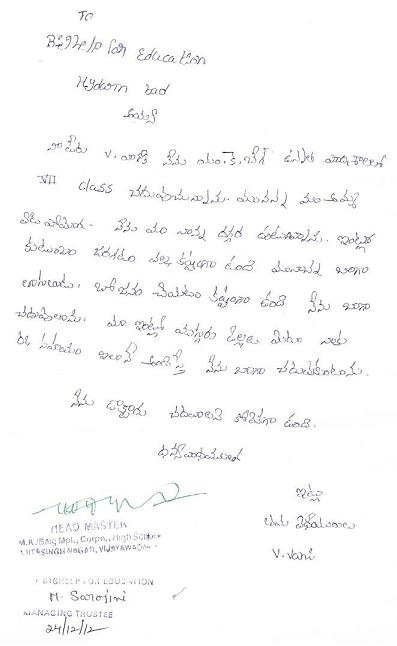 TO
BigHelp for Education
Hyderabad
అయ్యా
నా పేరు V. వాణి నేను యం.కె.బేగ్ ఉన్నత పాఠశాలలో
VII class చదువుచున్నాను. మా నాన్న మా అమ్మ
నేను మా నాన్న దగ్గర ఉంటున్నాను. ఇంట్లో
జరగడం చాలా కష్టంగా ఉంది. మా నాన్న బాగా
భోజనం చేయటం కష్టంగా ఉంది నేను బాగా
చదువుతాను. మా ఇంట్లో ముగ్గురు పిల్లలం మీరు నాకు
ఈ సహాయం ఇలానే అందిస్తే నేను బాగా చదువుకుంటాను.
నేను డాక్టరు చదవాలని కోరికగా ఉంది.
ధన్యవాదములతో
ఇట్లు
తమ విధేయురాలు
V. Vani
HEAD MASTER
M.K.Baig Mpl., Corpn., High School
SINGH NAGAR, VIJAYAWADA
BIGHELP FOR EDUCATION
M. Sarojini
MANAGING TRUSTEE
24/12/12